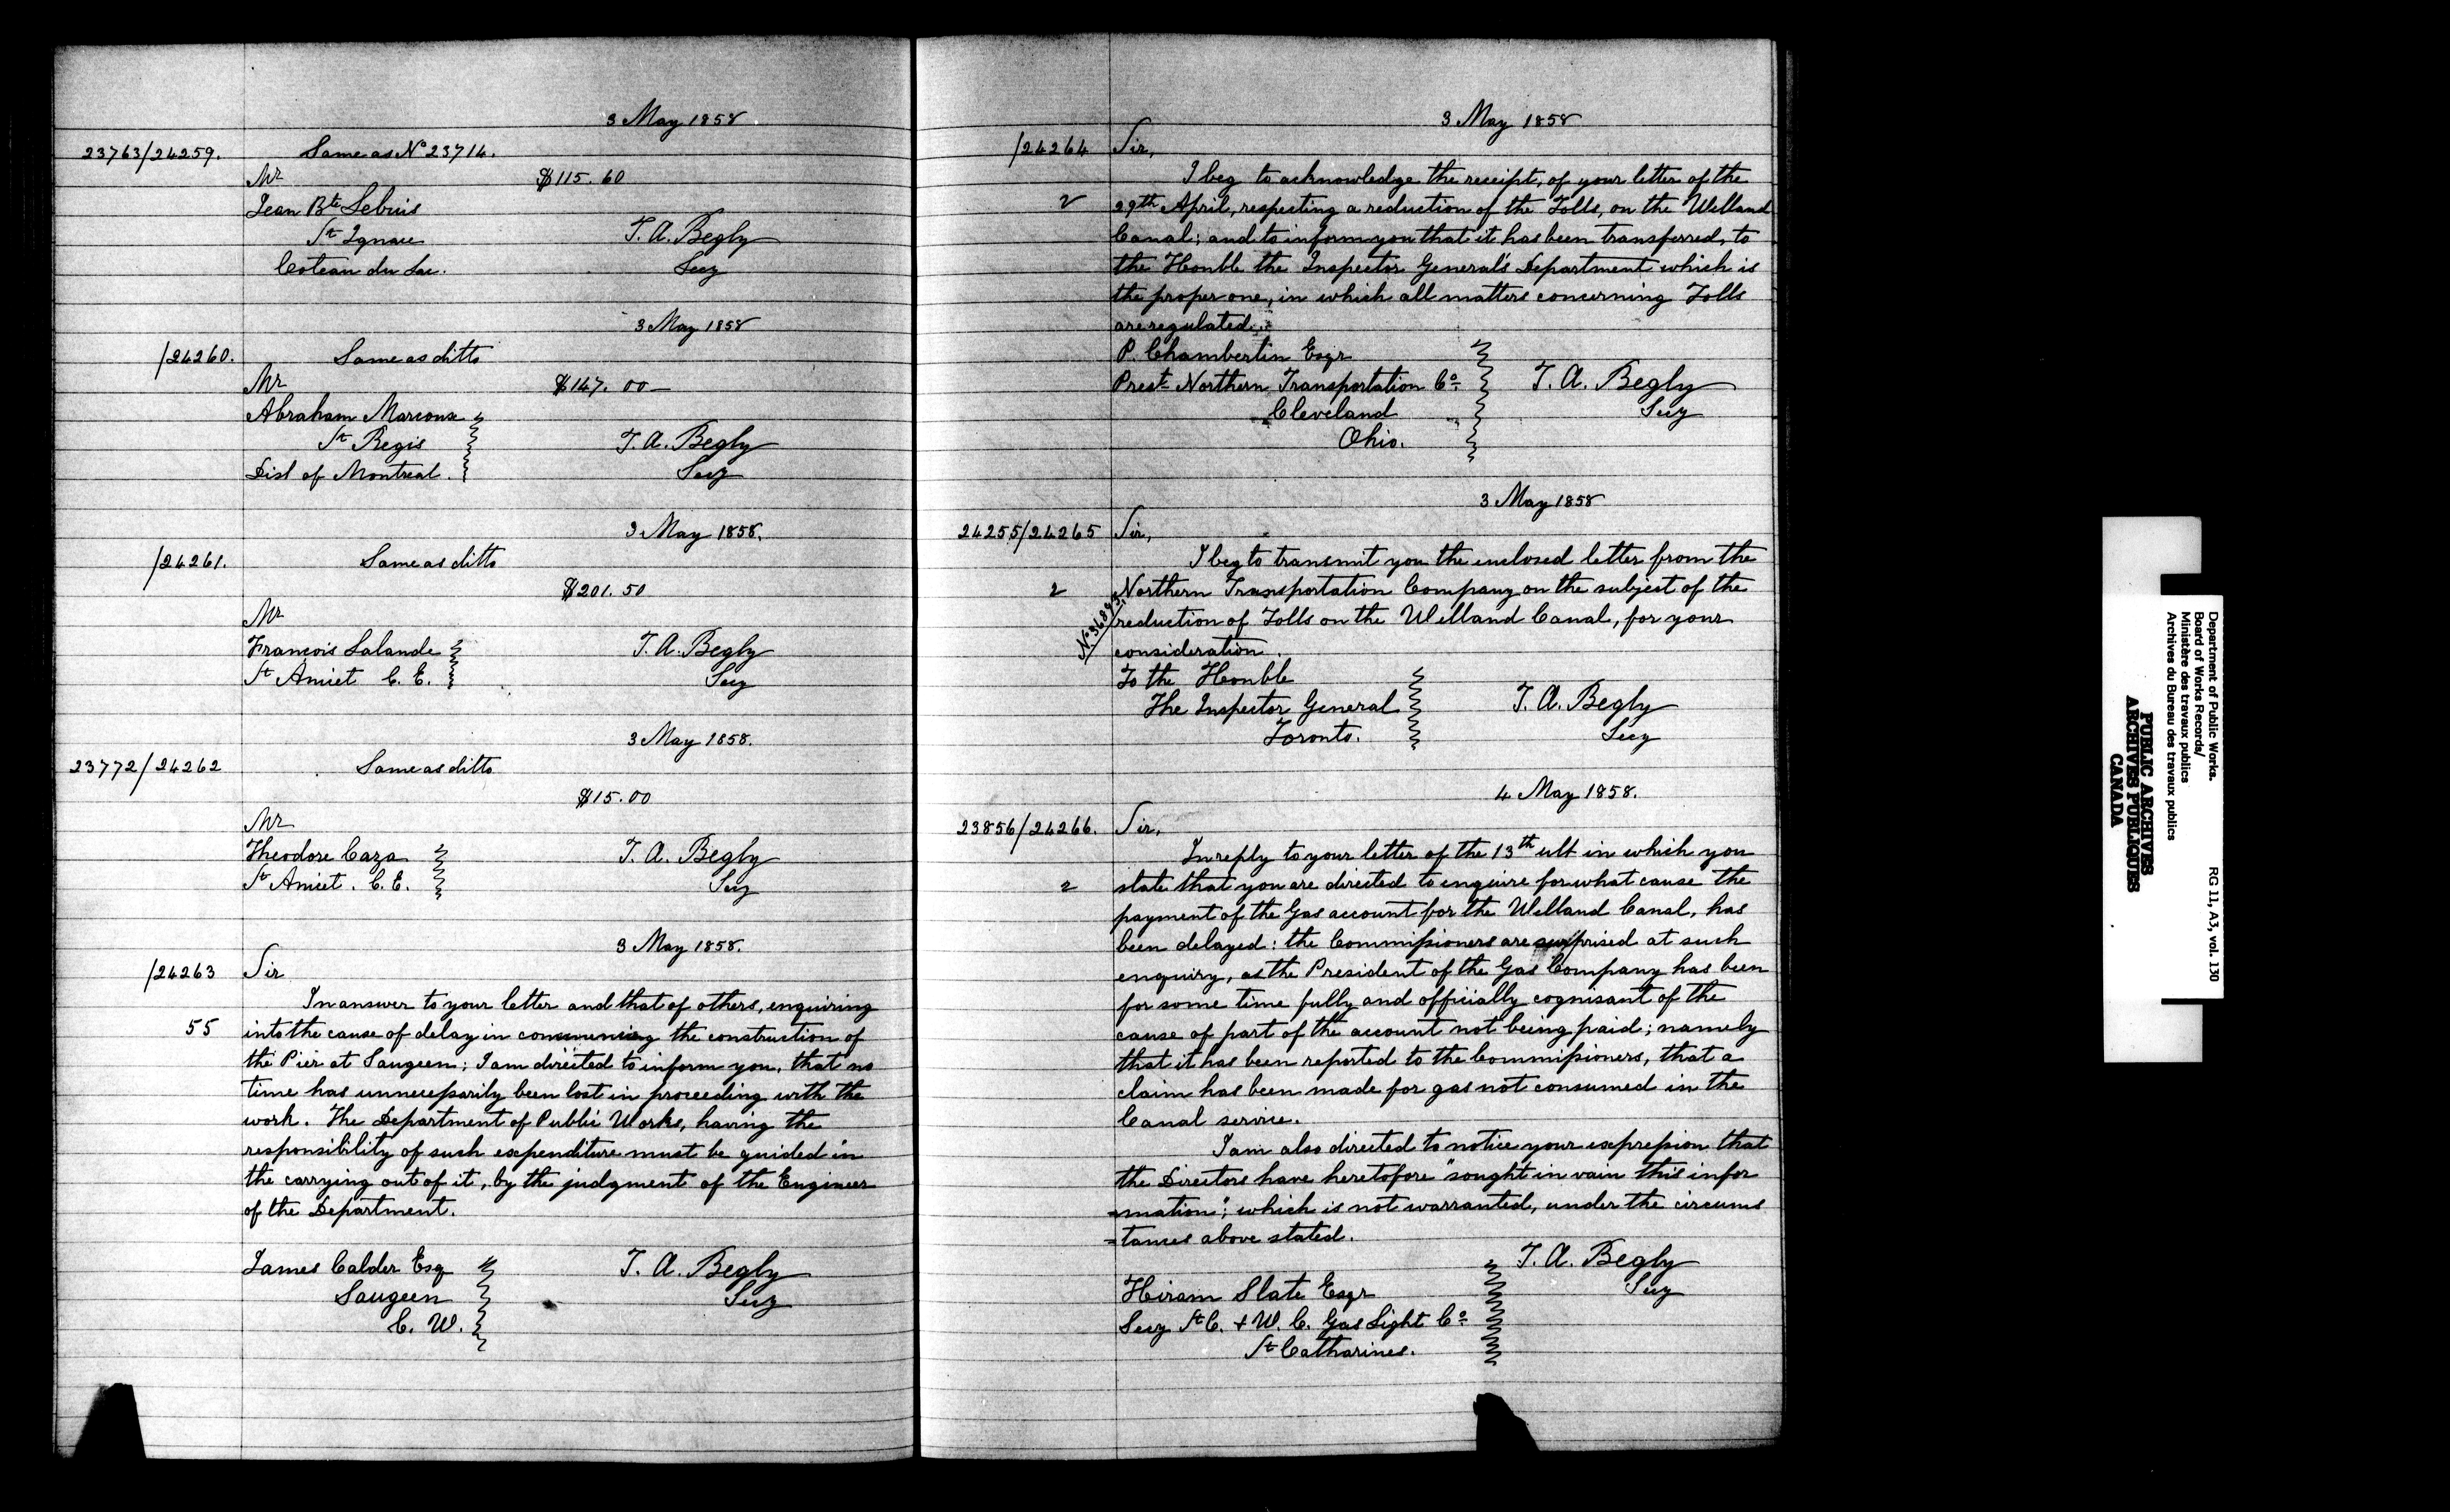 3 May 1858
23763/24259. Same as No 23714.
Mr $115.60
Jean Bte Lebuis
St Ignace T. A. Begly
Coteau du Lac. Secy
3 May 1858
/24260. Same as ditto
Mr $147.00
Abraham Marcoux
St Regis T. A. Begly
Dist of Montreal. Secy
3 May 1858.
/24261. Same as ditto
$201.50
Mr
Francois Lalande T. A. Begly
St Aniset C. E. Secy
3 May 1858.
23772/24262 Same as ditto
$15.00
Mr
Theodore Caza T. A. Begly
St Aniset. C. E. Secy
3 May 1858.
/24263 Sir
In answer to your letter and that of others, enquiring
55 into the cause of delay in commencing the construction of
the Pier at Saugeen; I am directed to inform you, that no
time has unnecessarily been lost in proceeding with the
work. The Department of Public Works, having the
responsibility of such expenditure must be guided in
the carrying out of it, by the judgment of the Engineer
of the Department.
James Calder Esq T. A. Begly
Saugeen Secy
C. W.
3 May 1858
/24264 Sir,
I beg to acknowledge the receipt, of your letter of the
2 29th April, respecting a reduction of the Tolls, on the Welland
Canal; and to inform you that it has been transferred, to
the Honble the Inspector General's Department which is
the proper one, in which all matters concerning Tolls
are regulated.
P. Chamberlin Esqr
Prest Northern Transportation Co. T. A. Begly
Cleveland Secy
Ohio.
3 May 1858
24255/24265 Sir,
I beg to transmit you the enclosed letter from the
2 Northern Transportation Company on the subject of the
No 36893 reduction of Tolls on the Welland Canal, for your
consideration.
To the Honble
The Inspector General T. A. Begly
Toronto. Secy
4 May 1858.
23856/24266. Sir,
In reply to your letter of the 13th ult in which you
2 state that you are directed to enquire for what cause the
payment of the Gas account for the Welland Canal, has
been delayed: the Commissioners are surprised at such
enquiry, as the President of the Gas Company has been
for some time fully and officially cognisant of the
cause of part of the account not being paid; namely
that it has been reported to the Commissioners, that a
claim has been made for gas not consumed in the
Canal service.
I am also directed to notice your expression that
the Directors have heretofore "sought in vain this infor
=mation"; which is not warranted, under the circums
=tances above stated.
T. A. Begly
Hiram Slate Esqr Secy
Secy St C. & W. C. Gas Light Co.
St Catharines.
Department of Public Works. RG 11, A3, vol. 130
Board of Works Records/
Ministère des travaux publics
Archives du Bureau des travaux publics
PUBLIC ARCHIVES
ARCHIVES PUBLIQUES
CANADA